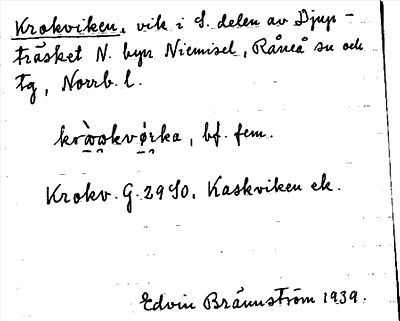 Krokviken, vik i S. delen av Djup-
träsket N. byn Niemisel, Råneå sn och
tg, Norrb. l.
kròokvi̯rka, bf. fem.
Krokv. G. 29 SO, Kaskviken ek.
Edvin Brännström 1939.